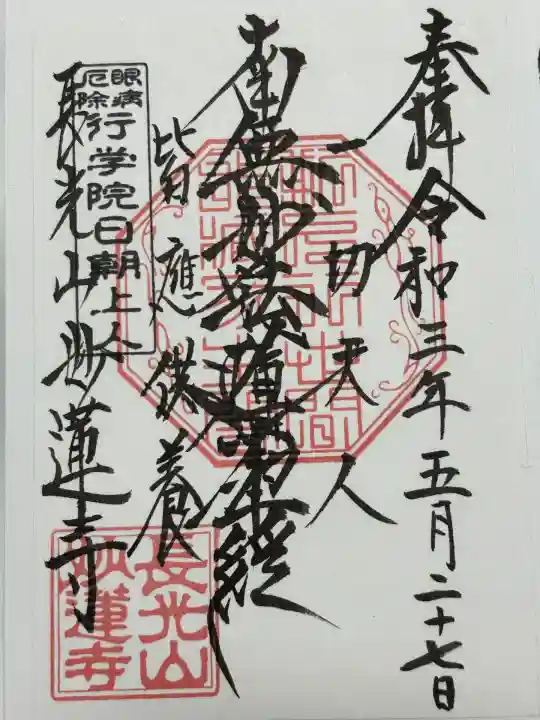 奉拝 令和三年五月二十七日
一切天人
南無妙法蓮華経
皆應供養
眼病
厄除
行学院日朝上人
長光山妙蓮寺
長光山
妙蓮寺